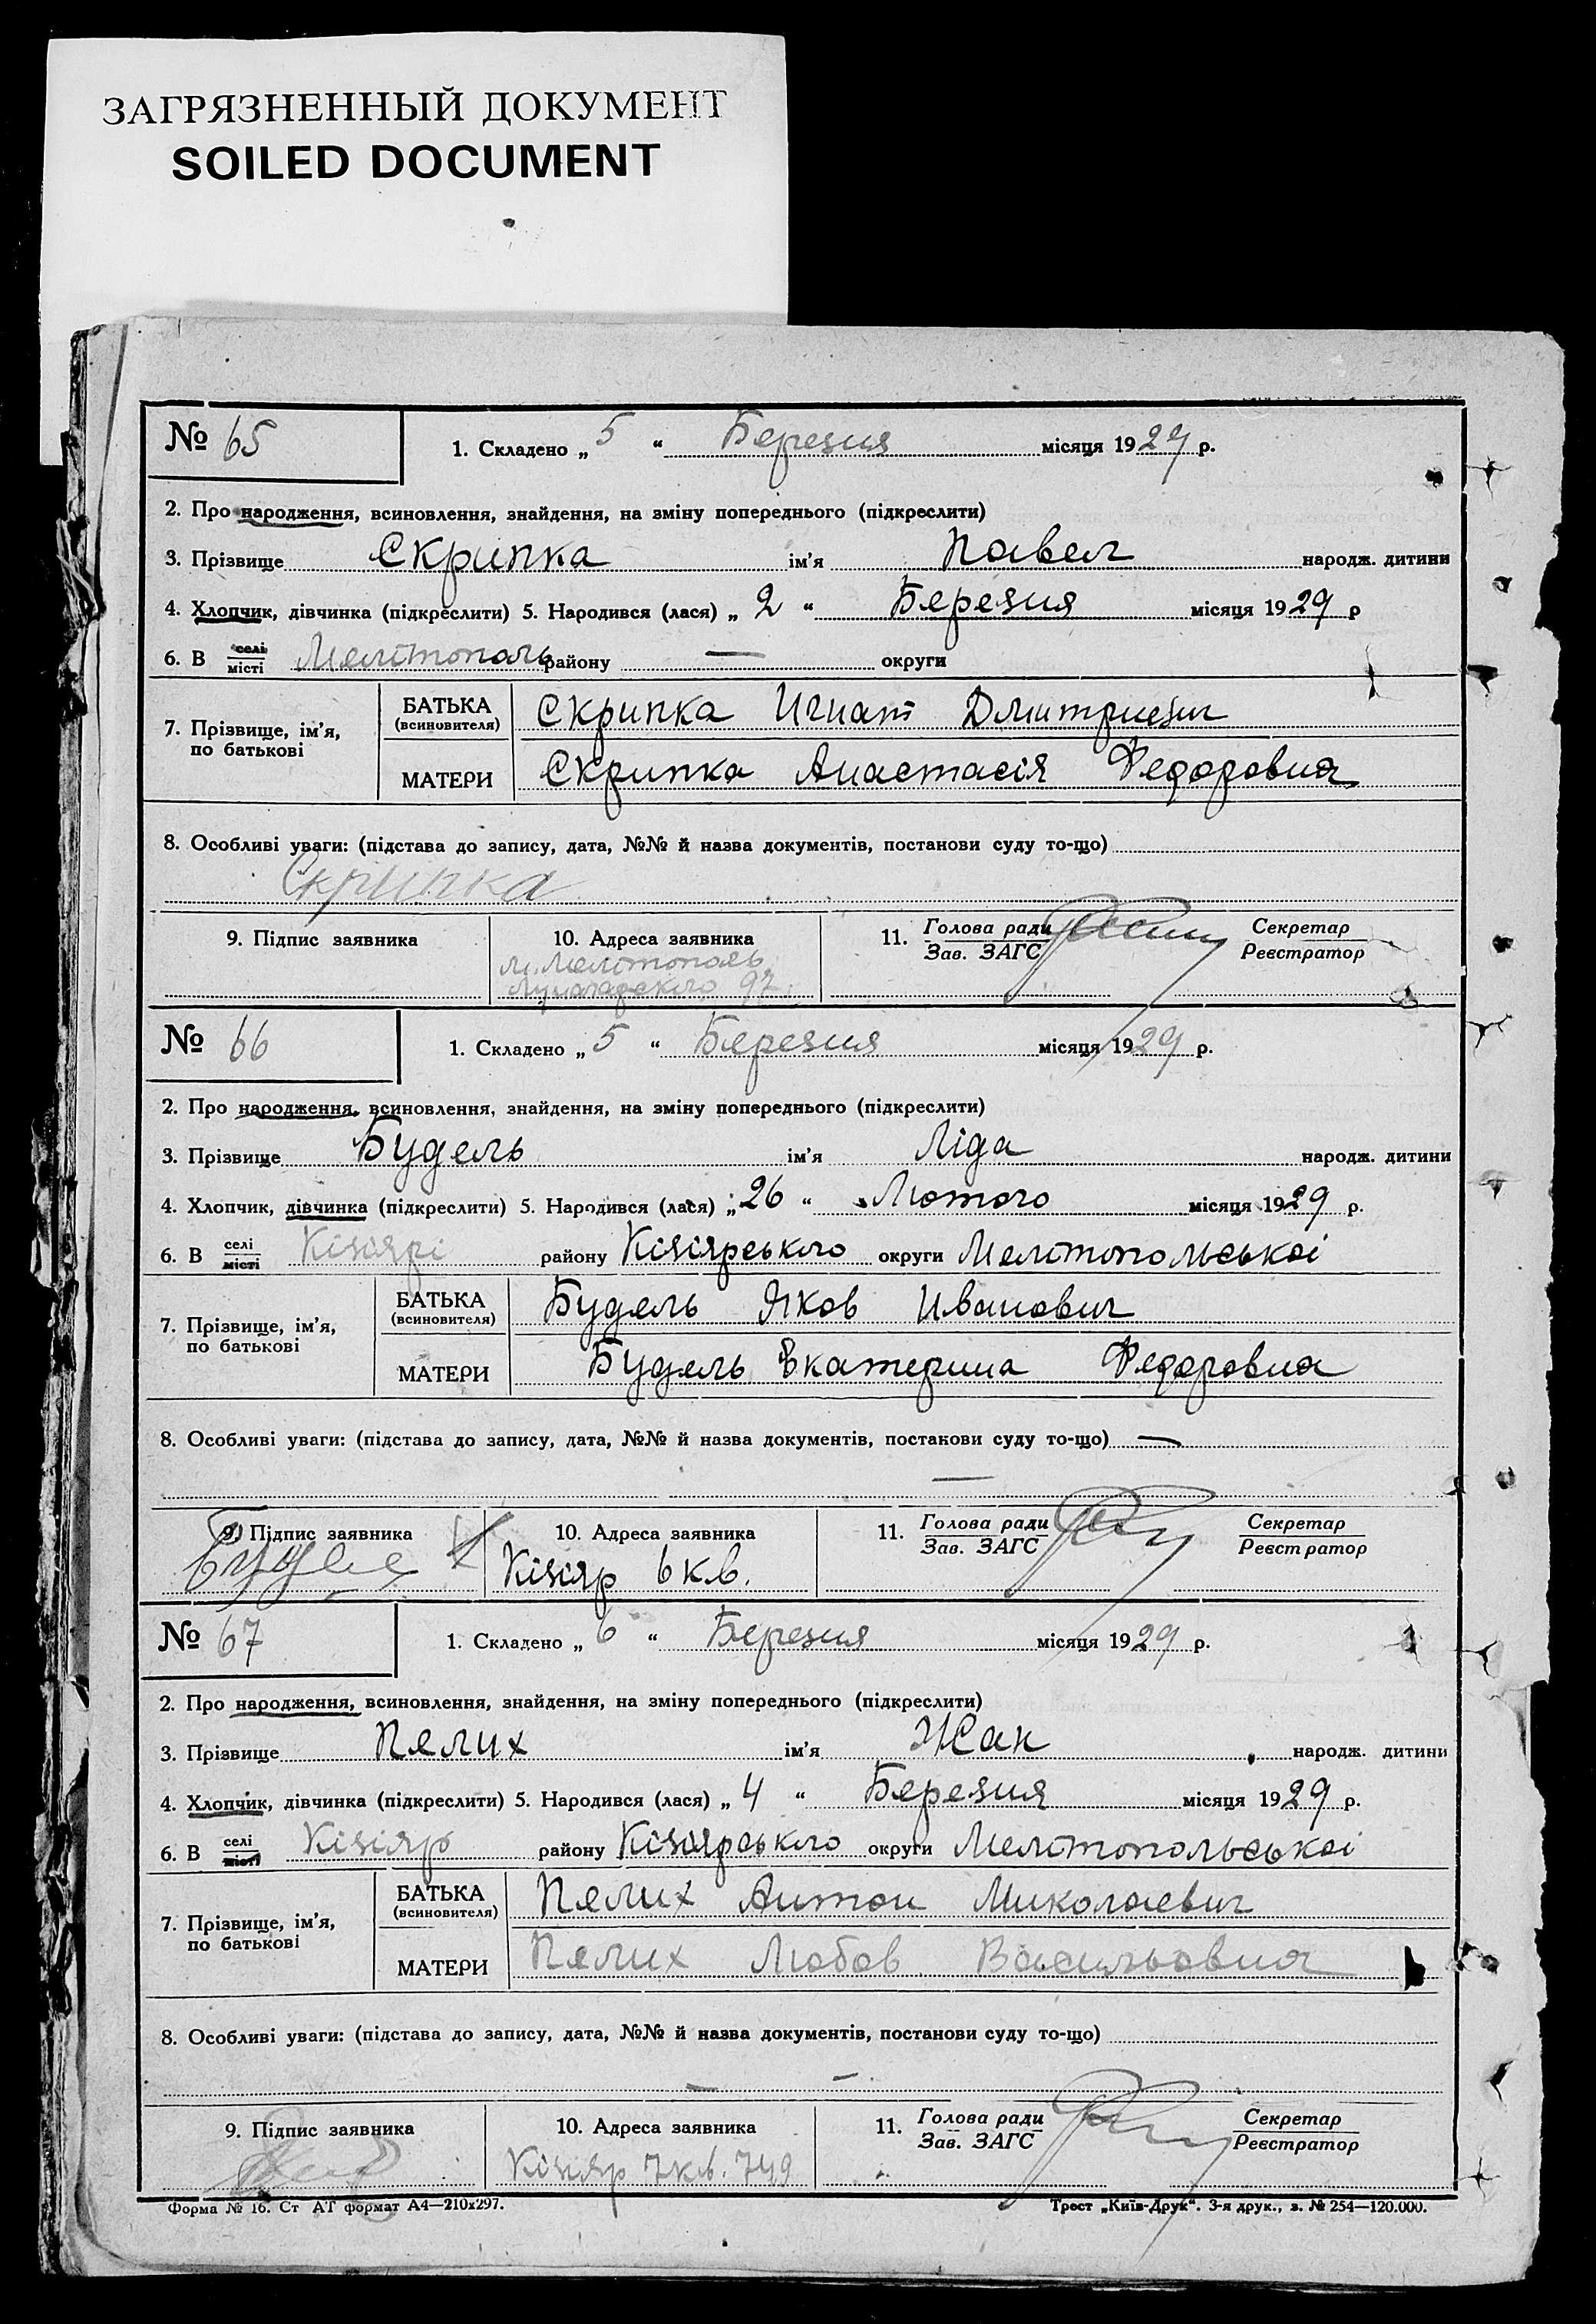 ЗАГРЯЗНЕННЫЙ ДОКУМЕНТ
SOILED DOCUMENT
№ 65
1. Складено „ 5 “ Березня місяця 1929 р.
2. Про народження, всиновлення, знайдення, на зміну попереднього (підкреслити)
3. Прізвище Скрипка ім'я Павел народж. дитини
4. Хлопчик, дівчинка (підкреслити) 5. Народився (лася) „ 2 “ Березня місяця 1929 р
6. В селі місті Мелітополь району — округи
7. Прізвище, ім'я, по батькові
БАТЬКА (всиновителя) Скрипка Игнат Дмитриевич
МАТЕРИ Скрипка Анастасія Федоровна
8. Особливі уваги: (підстава до запису, дата, №№ й назва документів, постанови суду то-що)
Скрипка
9. Підпис заявника
10. Адреса заявника
м. Мелітополь
Луначарского 97
11. Голова ради Зав. ЗАГС
Секретар Реєстратор
№ 66
1. Складено „ 5 “ Березня місяця 1929 р.
2. Про народження, всиновлення, знайдення, на зміну попереднього (підкреслити)
3. Прізвище Будель ім'я Ліда народж. дитини
4. Хлопчик, дівчинка (підкреслити) 5. Народився (лася) „ 26 “ Лютого місяця 1929 р.
6. В селі місті Кізіярі району Кізіярського округи Мелітопольськоі
7. Прізвище, ім'я, по батькові
БАТЬКА (всиновителя) Будель Яков Иванович
МАТЕРИ Будель Екатерина Федоровна
8. Особливі уваги: (підстава до запису, дата, №№ й назва документів, постанови суду то-що) —
—
9. Підпис заявника
10. Адреса заявника
Кізіяр 6 кв.
11. Голова ради Зав. ЗАГС
Секретар Реєстратор
№ 67
1. Складено „ 6 “ Березня місяця 1929 р.
2. Про народження, всиновлення, знайдення, на зміну попереднього (підкреслити)
3. Прізвище Пелих ім'я Жан народж. дитини
4. Хлопчик, дівчинка (підкреслити) 5. Народився (лася) „ 4 “ Березня місяця 1929 р.
6. В селі місті Кізіяр району Кізіярського округи Мелітопольськоі
7. Прізвище, ім'я, по батькові
БАТЬКА (всиновителя) Пелих Антон Миколаевич
МАТЕРИ Пелих Любов Васильовна
8. Особливі уваги: (підстава до запису, дата, №№ й назва документів, постанови суду то-що)
— —
9. Підпис заявника
10. Адреса заявника
Кізіяр 7 кв. 749
11. Голова ради Зав. ЗАГС
Секретар Реєстратор
Форма № 16. Ст АТ формат А4—210х297.
Трест „Київ-Друк“. 3-я друк., з. № 254—120.000.